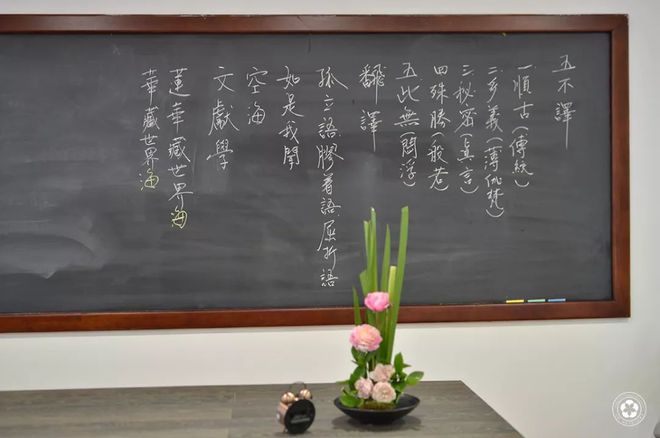 五不譯
一順古(傳統)
二多義(薄伽梵)
三秘密(真言)
四殊勝(般若)
五此無(閻浮)
翻譯
孤立語膠着語屈折語
如是我聞
空海
文獻學
蓮華藏世界海
華藏世界海